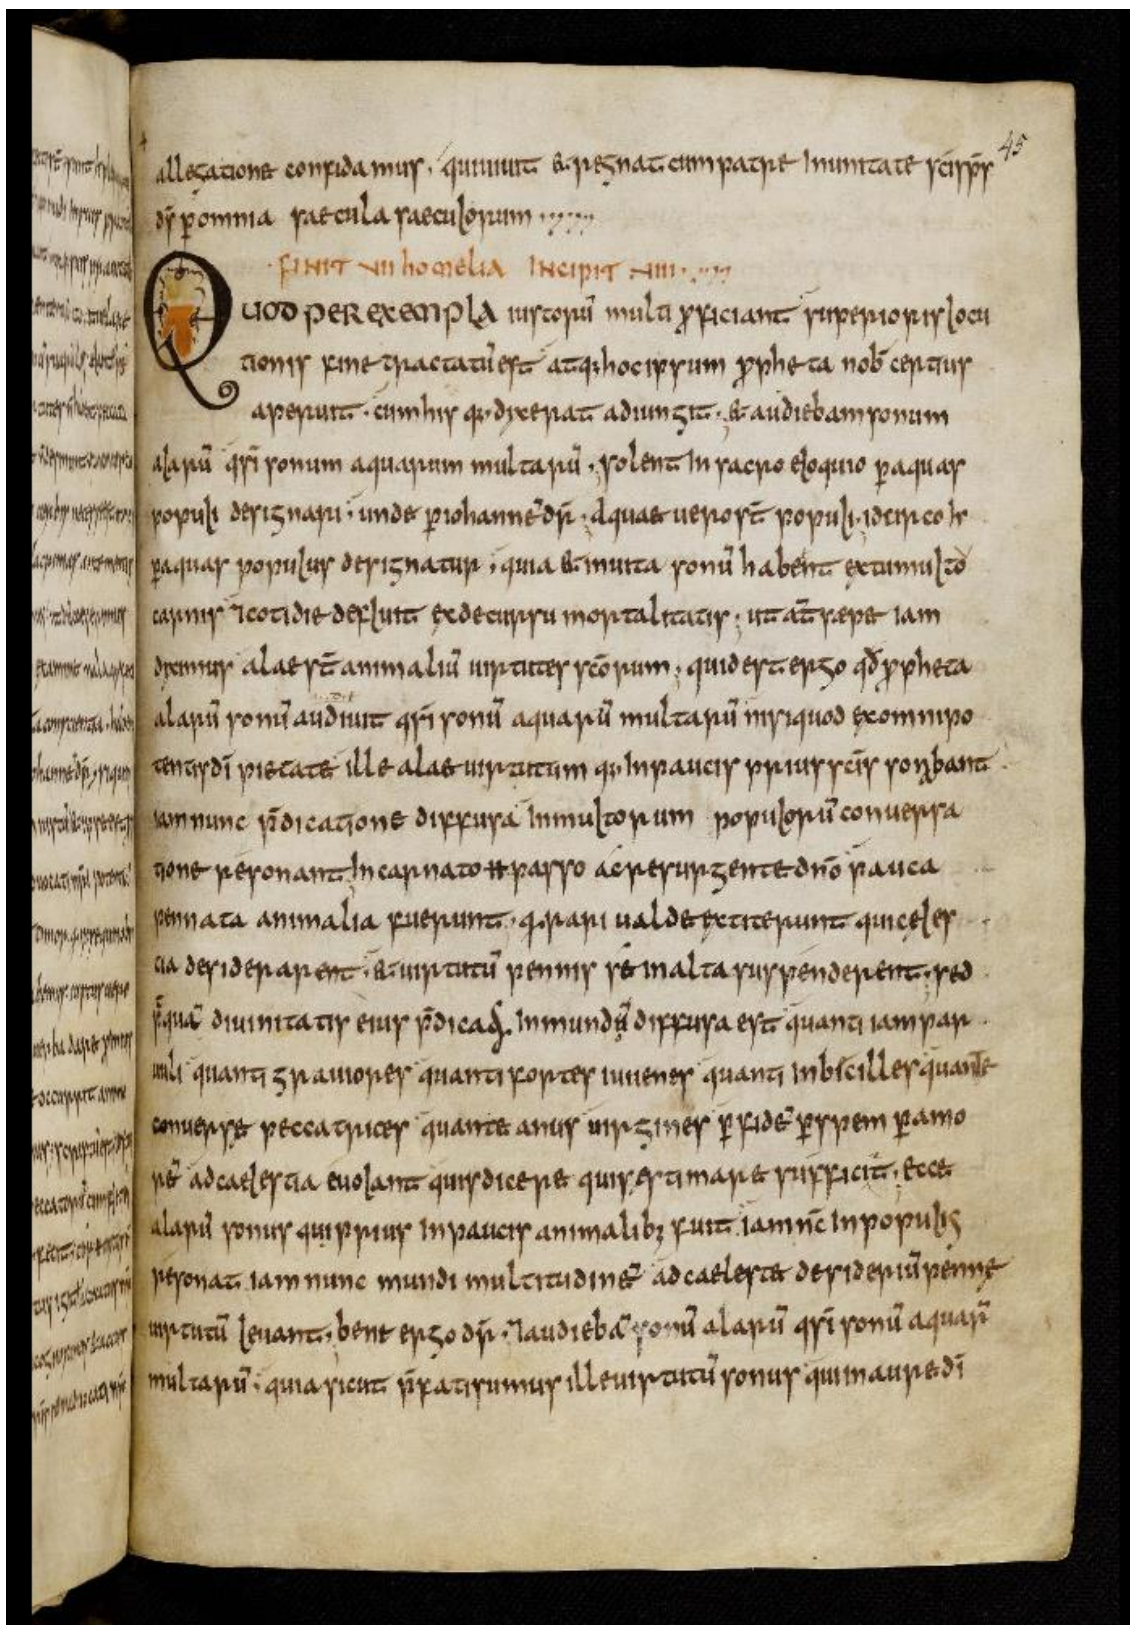 45
allegatione confidamus · qui uiuit & regnat cum patre in unitate sc̄i sp̄s
dš ꝑ omnia saecula saeculorum
FINIT VII homelia INCIPIT VIII
QUOD PER EXEMPLA iustorū multi ꝓficiant superioris locu
tionis fine tractatū est atq; hoc ipsum ꝓpheta nob̄ certius
aperuit · cum his q; dixerat adiungit · & audiebam sonum
alarū q̄si sonum aquarum multarū · solent in sacro eloquio ꝑ aquas
populi designari · unde ꝑ iohannē dr̄ · aquae uero st̄ populi · idcirco
ꝑ aquas populus designatur · quia & in uita sonū habent ex tumulto
carnis ⁊ cotidie defluit ex decursu mortalitatis · ut at̄ saepe iam
diximus alae st̄ animaliū uirtutes sc̄orum · quid est ergo qđ ꝓpheta
alarū sonū audiuit q̄si sonū aquarū multarū nisi quod ex omnipo
tentis dī pietate ille alae uirtutum q; in paucis prius sc̄is sonabant
iam nunc p̄dicatione diffusa in multorum populorū conuersa
tione resonant in carnato ⁊ passo ac resurgente dn̄o pauca
pennata animalia fuerunt · q; rari ualde extiterunt qui celes
tia desiderarent · & uirtutū pennis se in alta suspenderent · sed
p̄quā diuinitatis eius p̄dicā in mundū diffusa est quanti iam par
uuli quanti grauiores quanti fortes iuuenes quanti inbicilles quante
conuerse peccatrices quante anus uirgines ꝑ fidē ꝑ spem ꝑ amo
rē ad caelestia euolant quis dicere quis estimare sufficit · ecce
alarū sonus qui prius in paucis animalib; fuit iam nc̄ in populis
resonat iam nunc mundi multitudinē ad caeleste desideriū penne
uirtutū leuant · bene ergo dr̄ · ⁊ audiebā sonū alarū q̄si sonū aquarū
multarū · quia sicut p̄fati sumus ille uirtutū sonus qui in aure dī